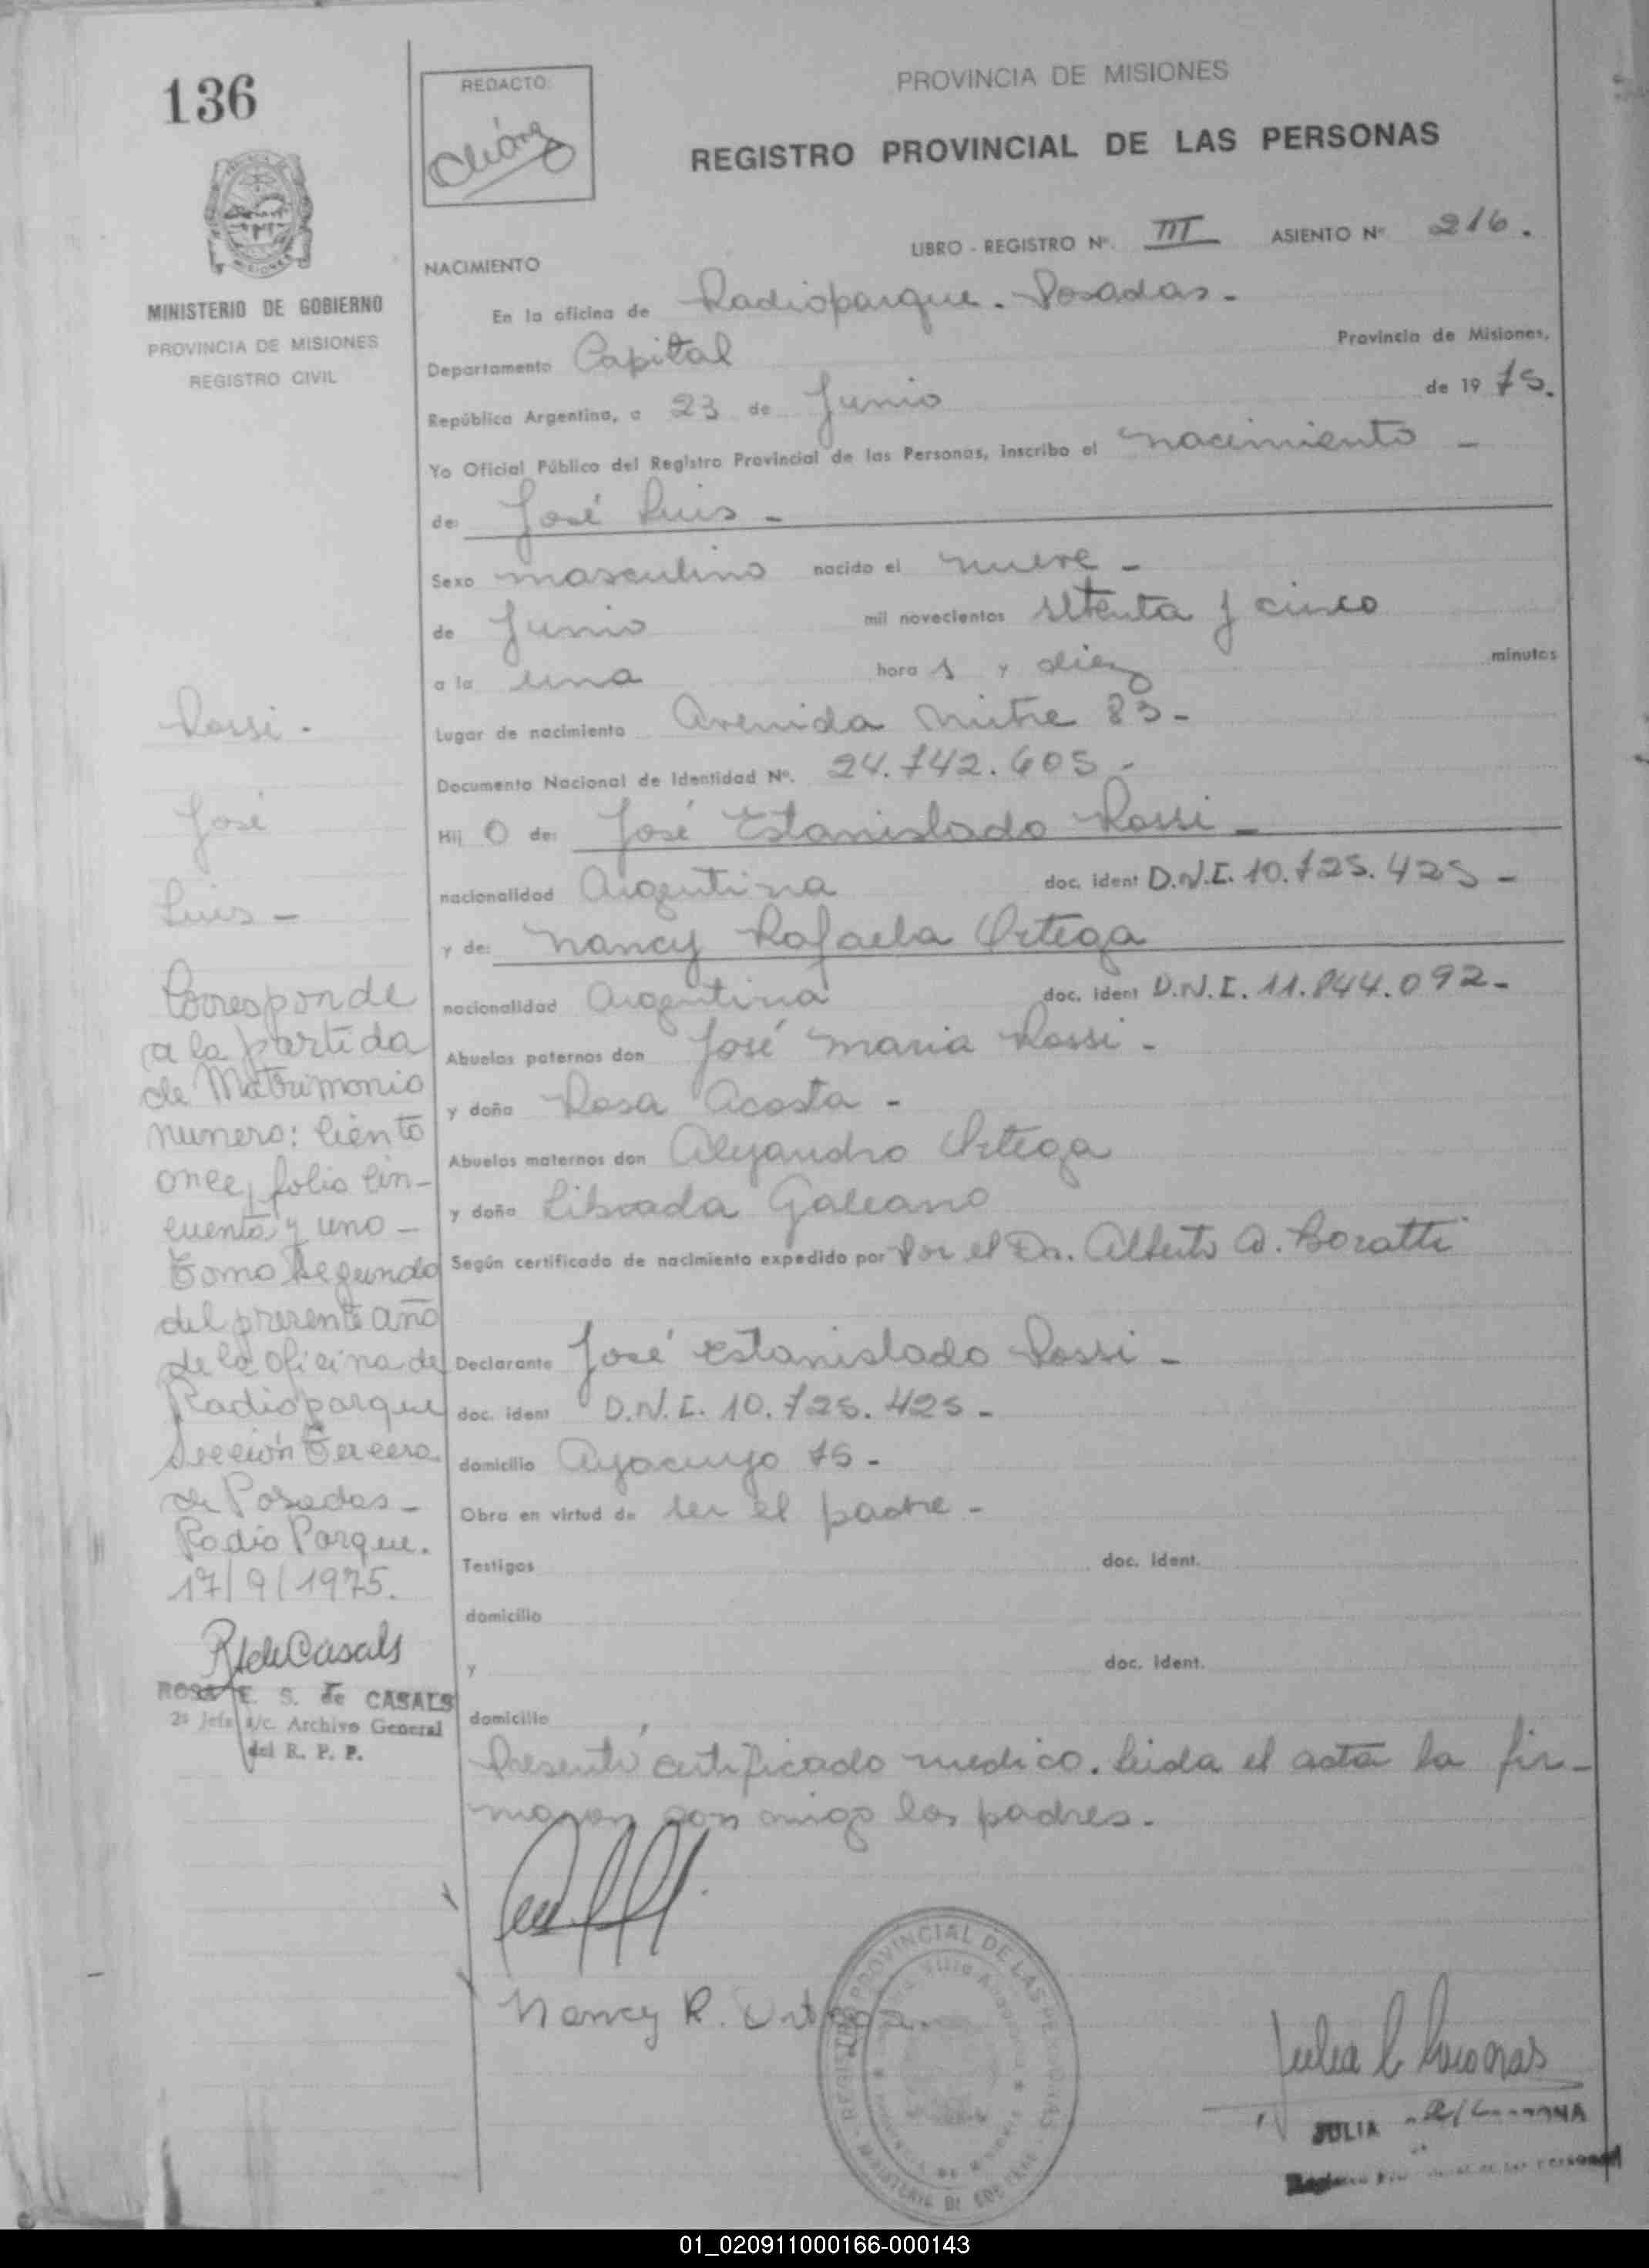 136
REDACTO:
PROVINCIA DE MISIONES
REGISTRO PROVINCIAL DE LAS PERSONAS
LIBRO - REGISTRO Nº. III ASIENTO Nº 216.
MINISTERIO DE GOBIERNO
PROVINCIA DE MISIONES
REGISTRO CIVIL
NACIMIENTO
En la oficina de Radioparque. Posadas.-
Departamento Capital Provincia de Misiones,
República Argentina, a 23 de Junio de 19 75.
Yo Oficial Público del Registro Provincial de las Personas, inscribo el nacimiento -
de: José Luis -
Sexo masculino nacido el nueve -
de Junio mil novecientos setenta y cinco
a la una hora s y diez minutos
Lugar de nacimiento Avenida Mitre 83-
Documento Nacional de Identidad Nº. 24.742.605.-
Hij o de: José Estanislado Rossi -
nacionalidad Argentina doc. ident D.N.I. 10.725.425 -
y de: Nancy Rafaela Ortega
nacionalidad Argentina doc. ident D.N.I. 11.844.092-
Abuelos paternos don José Maria Rossi -
y doña Rosa Acosta -
Abuelos maternos don Alejandro Ortega
y doña Librada Galeano
Según certificado de nacimiento expedido por Por el Dr. Alberto A. Boratti
Declarante José Estanislado Rossi -
doc. ident D.N.I. 10.725.425 -
domicilio Ayacuyo 75 -
Obra en virtud de ser el padre -
Testigos doc. ident.
domicilio
y doc. ident.
domicilio
Presentó certificado medico. Leida el acta la fir-
maron con migo los padres.
Rossi -
José
Luis -
Corresponde
a la partida
de Matrimonio
numero: Ciento
once, folio Cin-
cuenta y uno -
Tomo Segundo
del presente año
de la oficina de
Radioparque
Sección Tercera
de Posadas -
Radio Parque.
17/9/1975.
R de Casals
ROSA E. S. de CASALS
2ª Jefe a/c. Archivo General
del R. P. P.
Nancy R. Ortega.
REGISTRO PROVINCIAL DE LAS PERSONAS
MINISTERIO DE GOBIERNO
Julia
JULIA
01_020911000166-000143